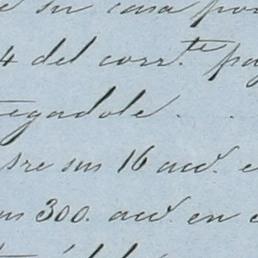 su casa por
4 del corr.te pa
egadole.
sre sus 16 acc.s e
us 300. acc.s en